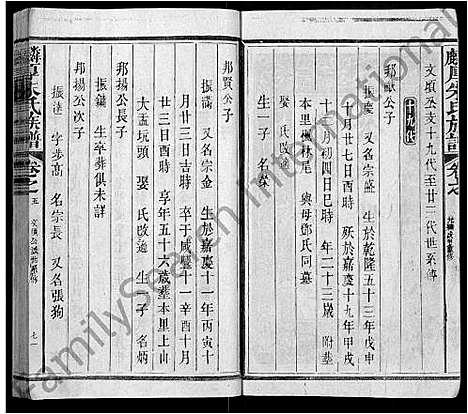 麟厚朱氏族譜 卷之
文煩丞支十九代至廿三代世系傳
十九代
邦猷公子
振慶 又名宗盛 生於乾隆五十三年戊申
十月廿七日酉時 歿於嘉慶十九年甲戌
十月初四日巳時 年二十三歲 附塟
本里樹林尾 與母鄧氏同墓
娶 氏改適
生一子 名
邦賢公子
振 又名宗金 生於嘉慶十一年丙寅十
月廿三日吉時 卒于咸豐十一辛酉十月
廿三日酉時 享年五十六歲塟本里上山
大盂坑頭 娶 氏改適 生一子 名炳
邦揚公長子
振鏞 生卒葬俱未詳
邦揚公次子
振 字步高 名宗長 又名張狗
麟厚朱氏族譜 卷之五 七一
FamilySearch International